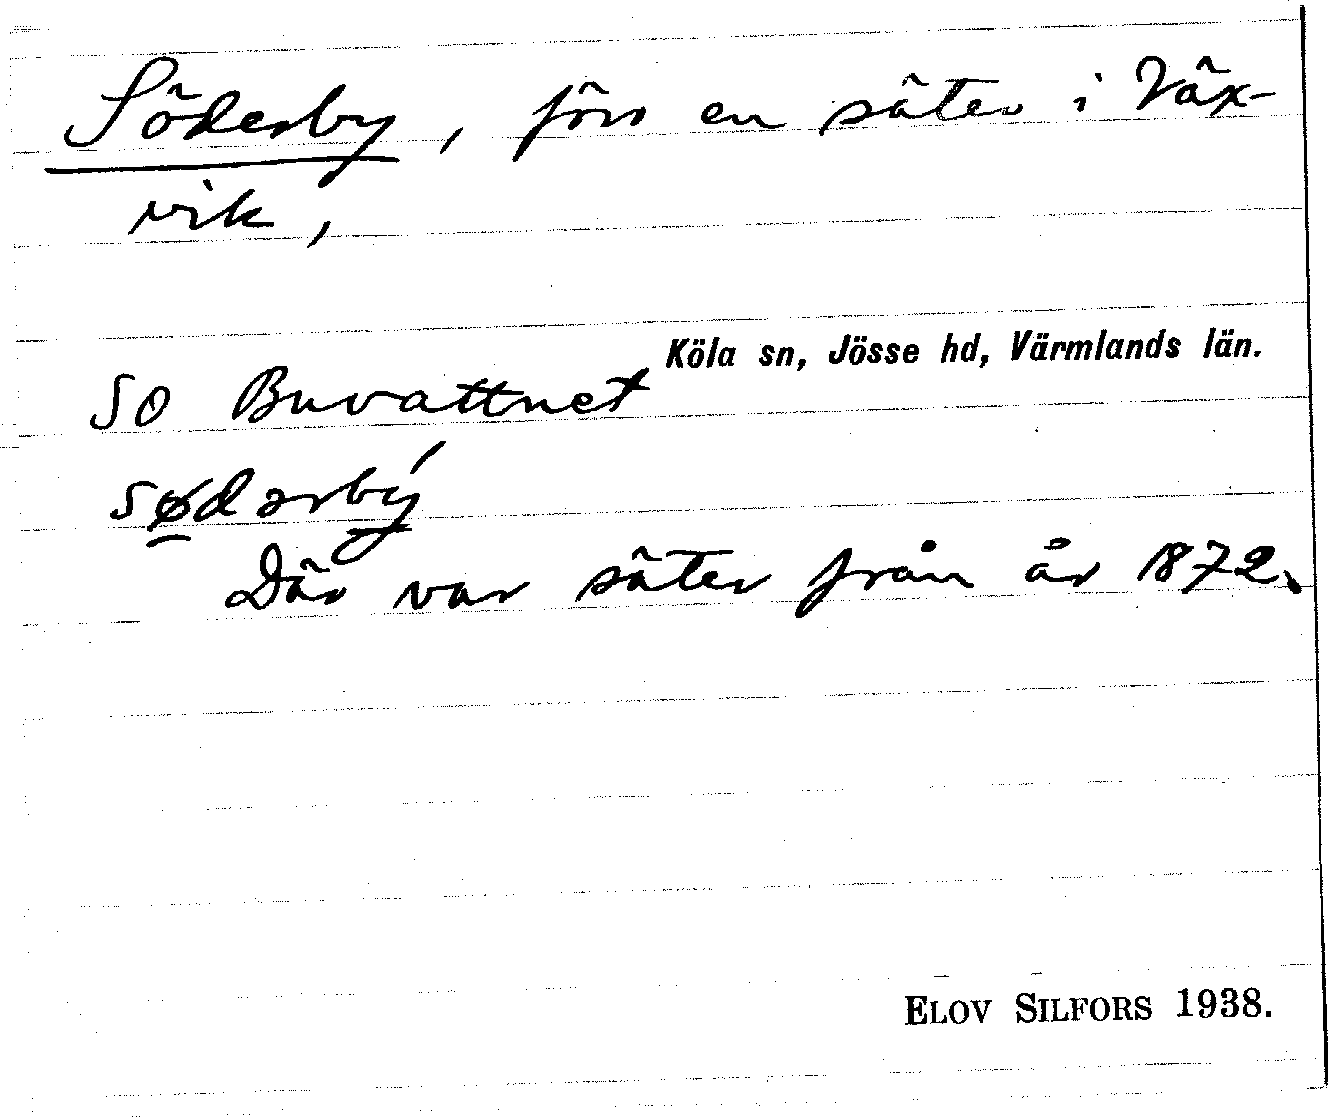 Söderby, förr en säter i Väx-
vik,
Köla sn, Jösse hd, Värmlands län.
SO Buvattnet
sødərbý
Där var säter från år 1872.
ELOV SILFORS 1938.